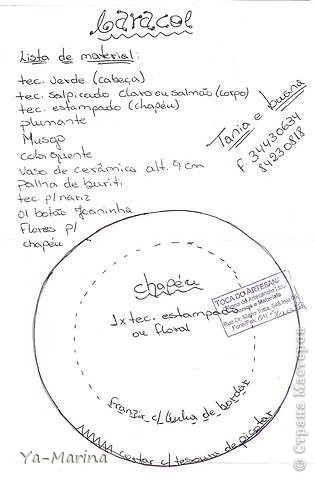 caracol
Lista de material:
tec. verde (cabeça)
tec. salpicado claro ou salmão (corpo)
tec. estampado (chapéu)
plumante
Musgo
cola quente
vaso de cerâmica alt. 9 cm
palha de buriti
tec p/ nariz
01 botão Joaninha
Flores p/
chapéu
Tania e Luana
F. 34430634
84230818
chapéu
1x tec. estampado
ou floral
TOCA DO ARTESAN
franzir c/ linha de bordar
cortar c/ tesoura de picotar
Ya-Marina
© Страна Мастеров